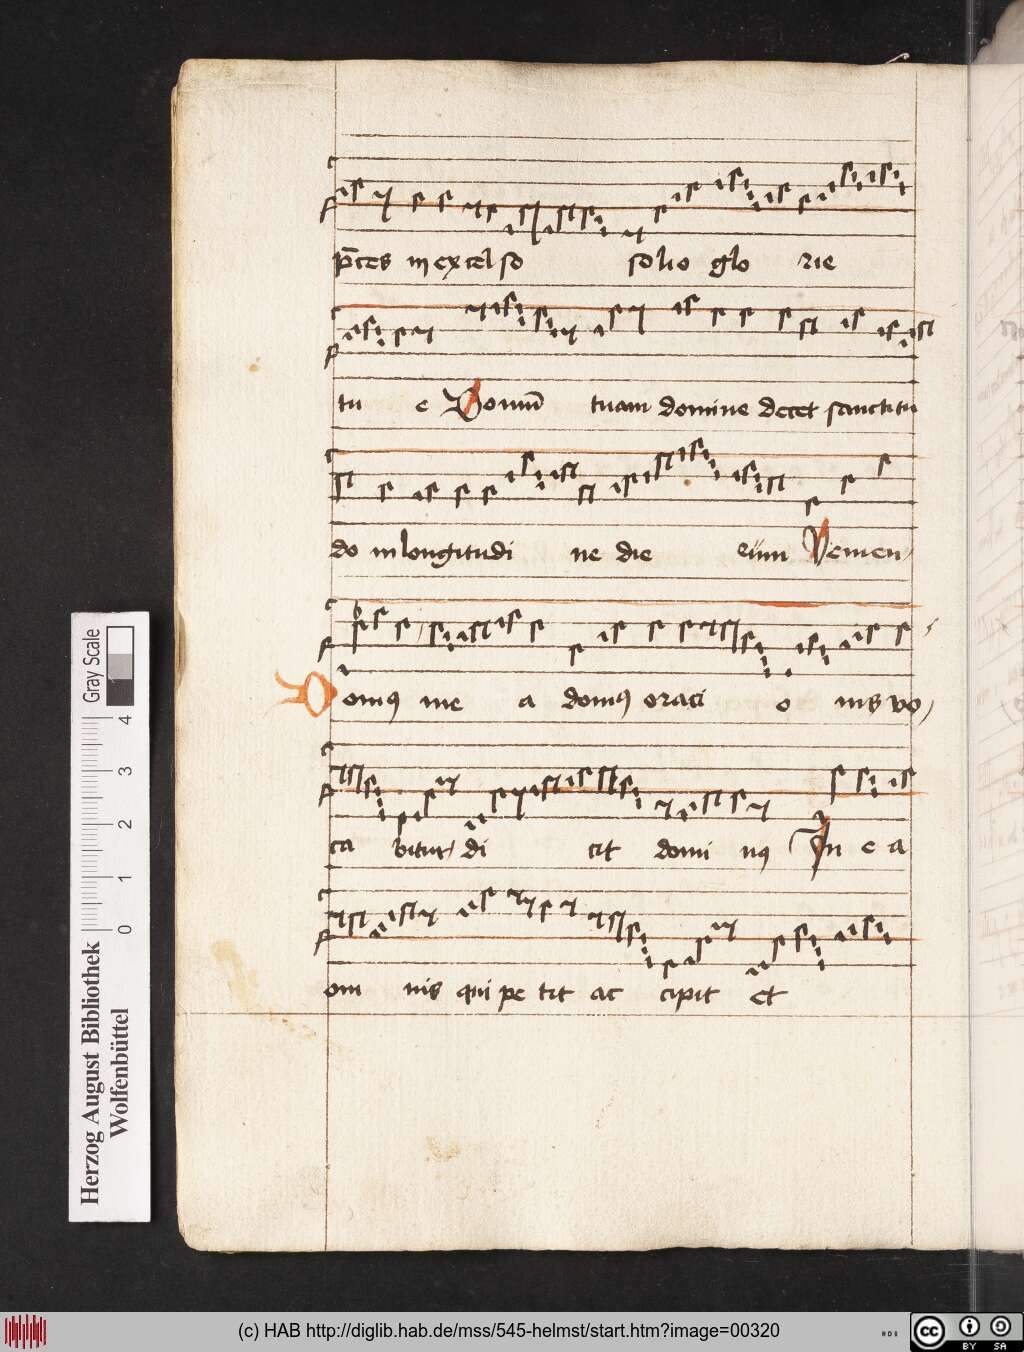 p̄ces in excelso solio glo rie
tu e Domū tuam domine decet sanctitu
do in longitudi ne die eum Venien
Domꝰ me a domꝰ oraci o nis vo
ca bitur di cit domi nꝰ In e a
om nis qui pe tit ac cipit et
Gray Scale
4
3
2
1
0
Herzog August Bibliothek
Wolfenbüttel
(c) HAB http://diglib.hab.de/mss/545-helmst/start.htm?image=00320
cc BY SA